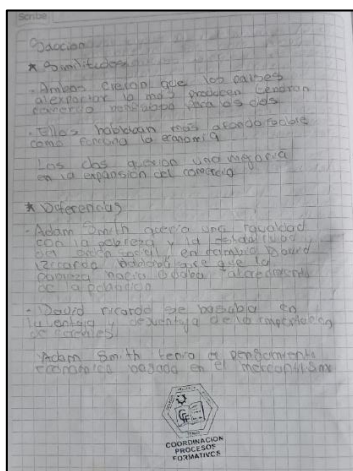 Scribe
* Similitudes
- Ambos creían que los países
al exportar lo más producen
comercio para los dos
- Ellos hablaban más a fondo sobre
como funciona la economía
Los dos querían una mejoría
en la expansión del comercio
* Diferencias
- Adam Smith quería una igualdad
con la pobreza y la
David
Ricardo que la
pobreza hacia
de la población
- David ricardo se basaba en
la ventaja y desventaja de la
de cereales
Adam Smith tenía el pensamiento
económico basado en el mercantilismo
COORDINACION
PROCESOS
FORMATIVOS